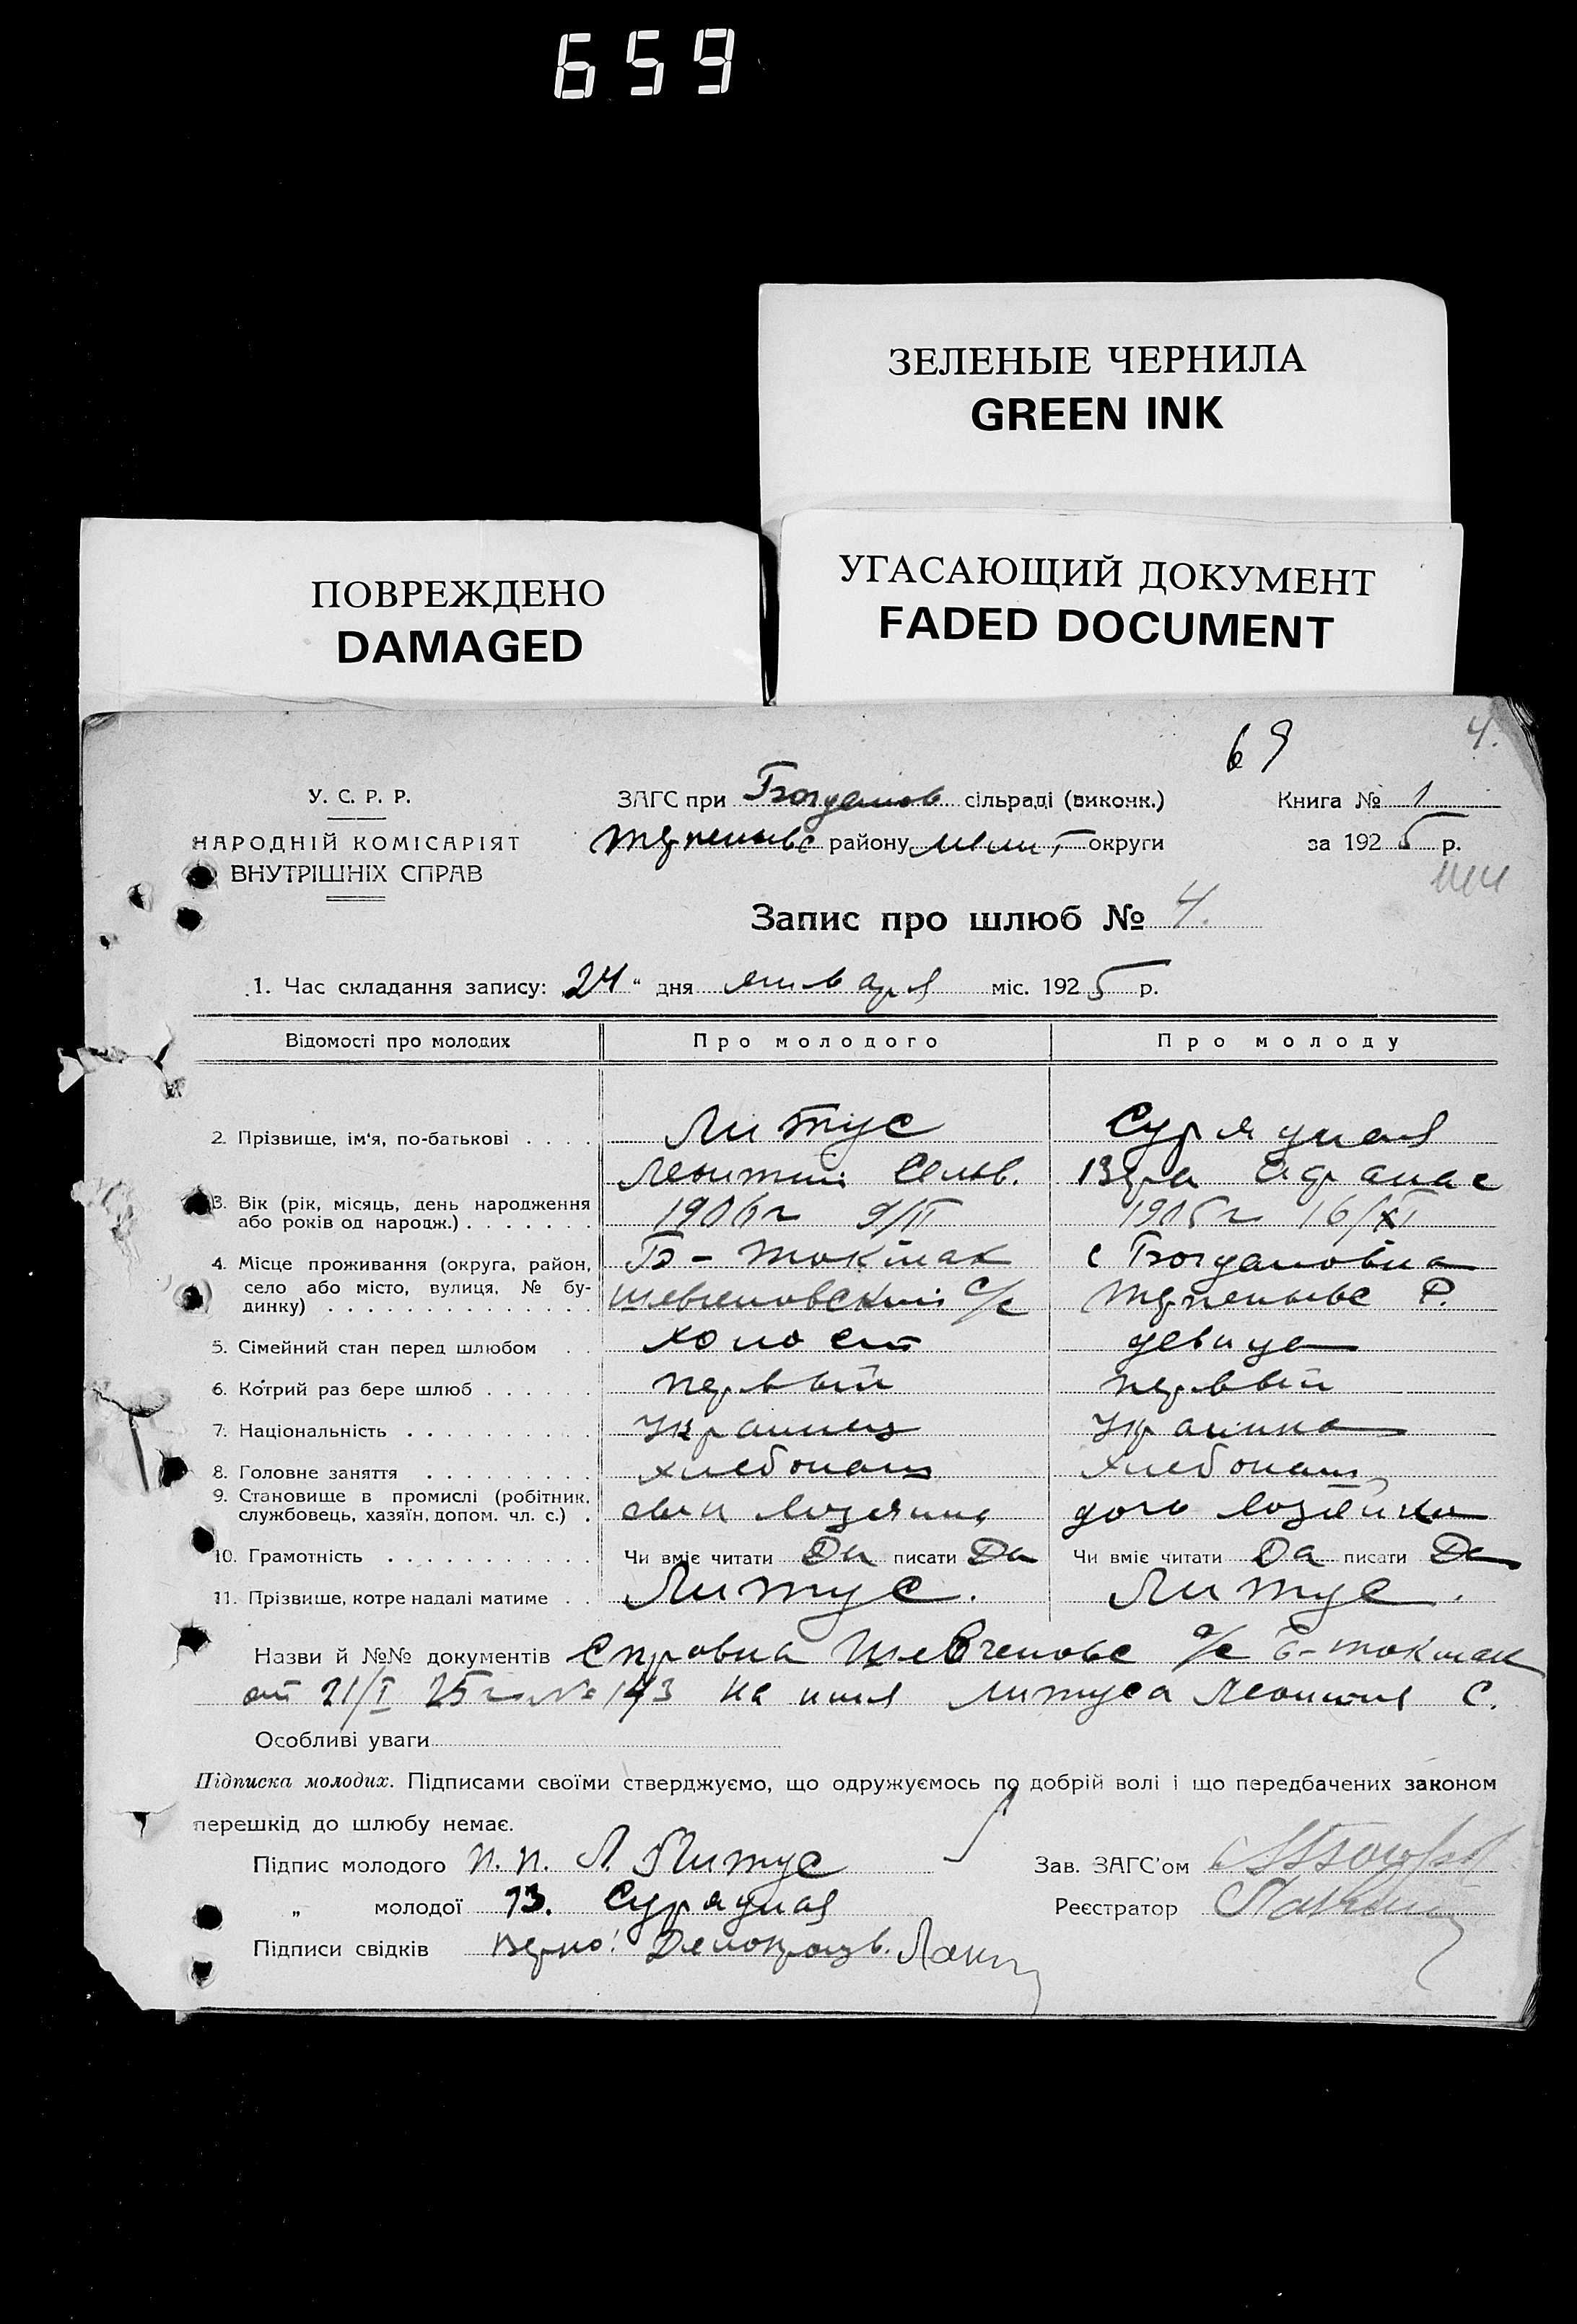 659
ЗЕЛЕНЫЕ ЧЕРНИЛА
GREEN INK
ПОВРЕЖДЕНО
DAMAGED
УГАСАЮЩИЙ ДОКУМЕНТ
FADED DOCUMENT
69
4.
У. С. Р. Р.
НАРОДНІЙ КОМІСАРІЯТ
ВНУТРІШНІХ СПРАВ
ЗАГС при Богданов сільраді (виконк.)
району Мелит, округи
Книга № 1
за 1925 р.
Запис про шлюб № 4.
1. Час складання запису: 24 " дня января міс. 1925 р.
Відомості про молодих
Про молодого
Про молоду
2. Прізвище, ім'я, по-батькові . . . . Литус Сурядная
Леонтий Сельв. Вера Афанас
3. Вік (рік, місяць, день народження або років од народж.) . . . . . . . 1906 г 9/II 1905 г 16/XI
4. Місце проживання (округа, район, село або місто, вулиця, № будинку) . . . . . . . . . . . . . .
Б-Токмак с Богдановка
Шевченковский с/с Терпеньевс Р.
5. Сімейний стан перед шлюбом . . холост девица
6. Котрий раз бере шлюб . . . . . . первый первый
7. Національність . . . . . . . . . . украинец украинка
8. Головне заняття . . . . . . . . . хлебопаш хлебопаш
9. Становище в промислі (робітник, службовець, хазяїн, допом. чл. с.) . сын хозяина дочь хозяйки
10. Грамотність . . . . . . . . . . . Чи вміє читати Да писати Да Чи вміє читати Да писати Да
11. Прізвище, котре надалі матиме . . Литус. Литус.
Назви й №№ документів Справка Шевченовс с/с Б-Токмак
от 21/I 25 г № 143 на имя Литуса Леонтия С.
Особливі уваги
Підписка молодих. Підписами своїми стверджуємо, що одружуємось по добрій волі і що передбачених законом
перешкід до шлюбу немає.
Підпис молодого п. п. Л Литус
Зав. ЗАГС'ом
„ молодої В. Сурядная
Реєстратор
Підписи свідків Верно: